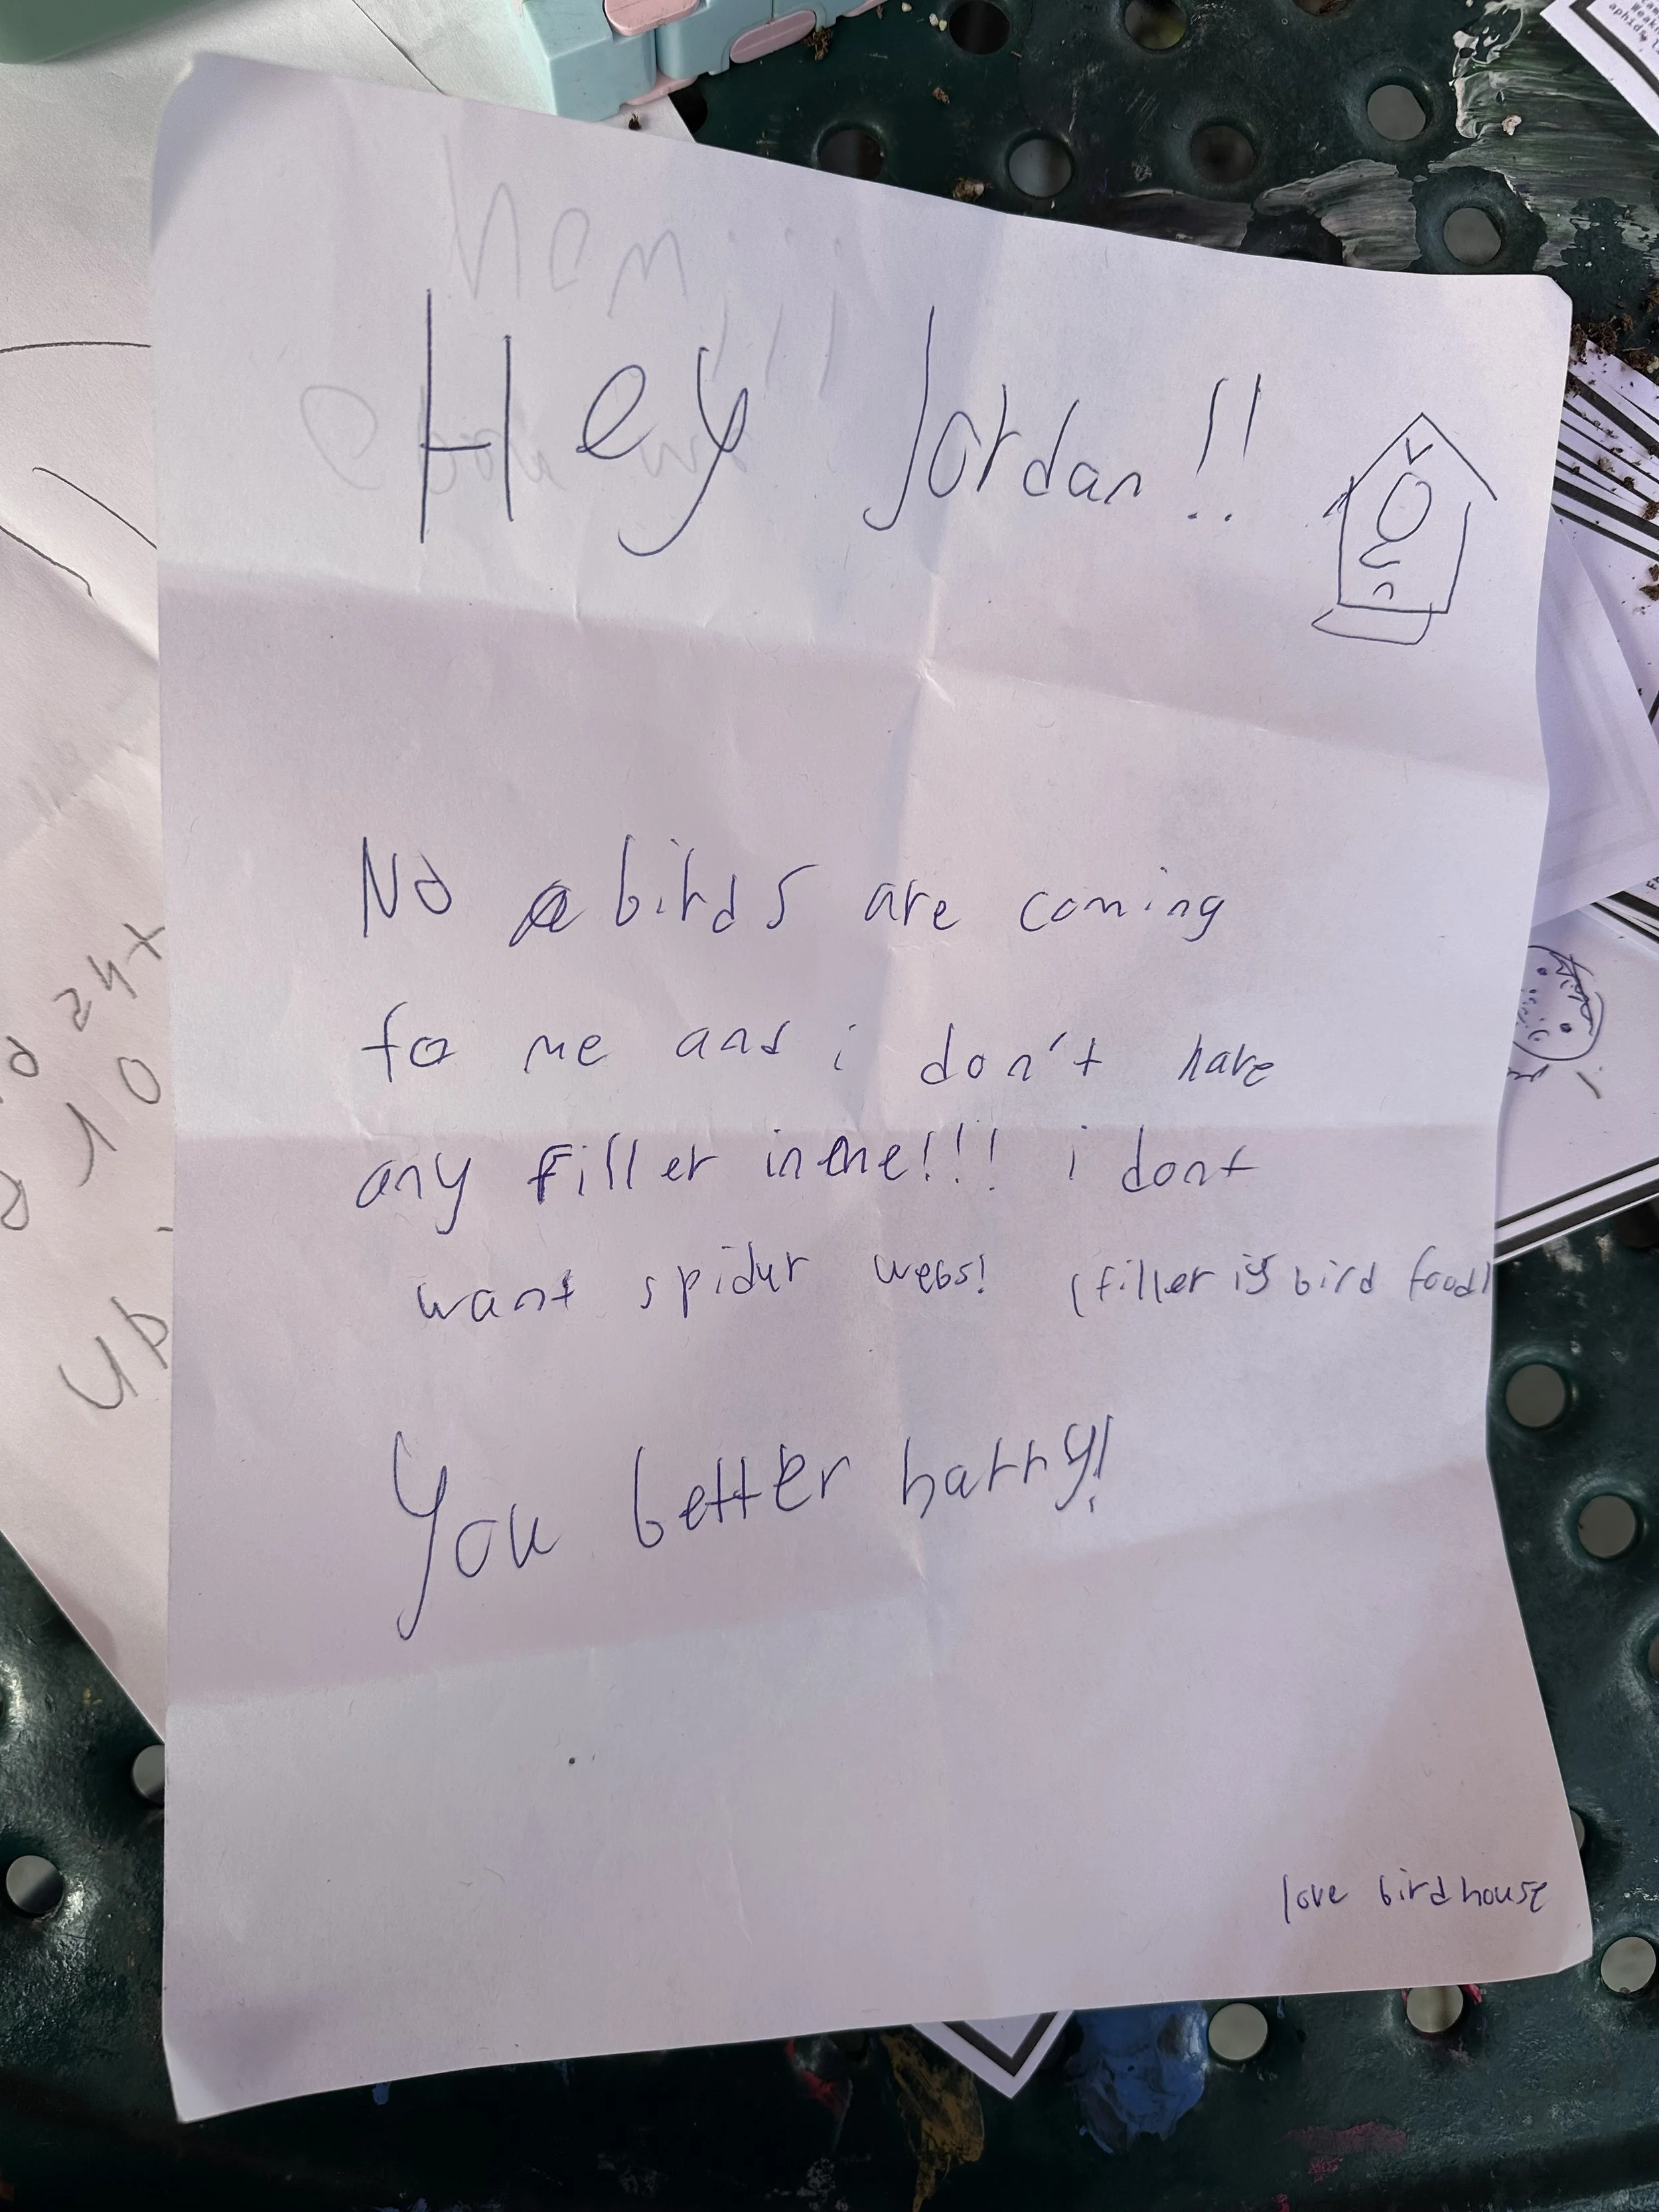 Hey Jordan!!
No birds are coming
to me and i don't have
any filler in me!!! i dont
want spidur webs! (filler is bird food)
You better harry!
love birdhouse
24x
10
up